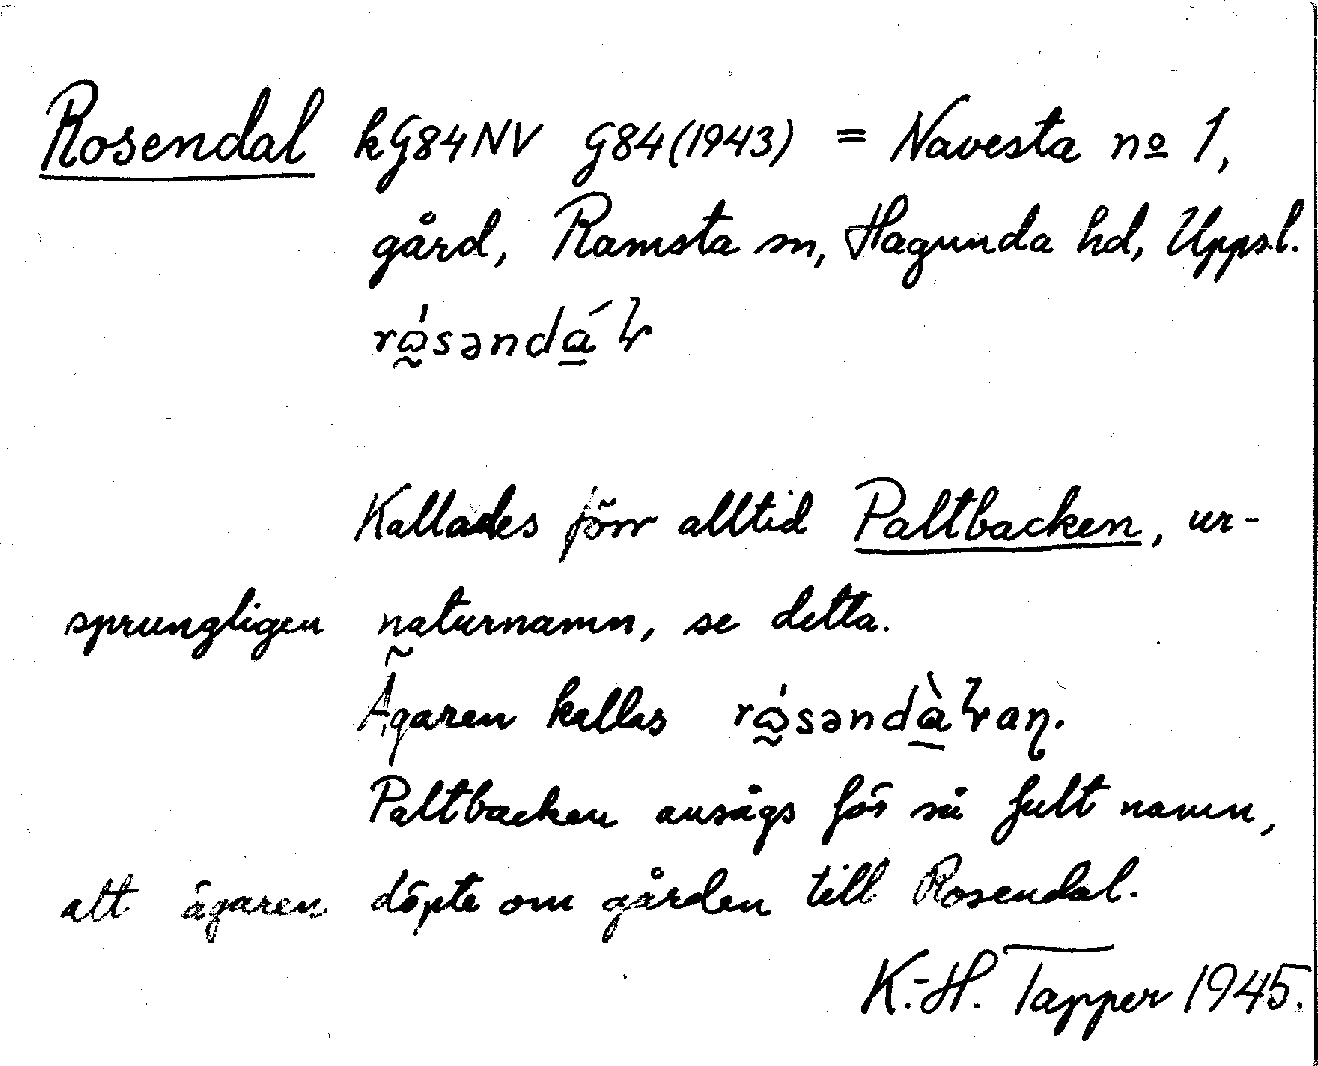 Rosendal kG84NV G84(1943) = Navesta nº 1,
gård, Ramsta sn, Hagunda hd, Uppsl.
Kallades förr alltid Paltbacken, ur-
sprungligen naturnamn, se detta.
Ägaren kallas
Paltbacken ansågs för så fult namn,
att ägaren döpte om gården till Rosendal.
K.-H. Tapper 1945.